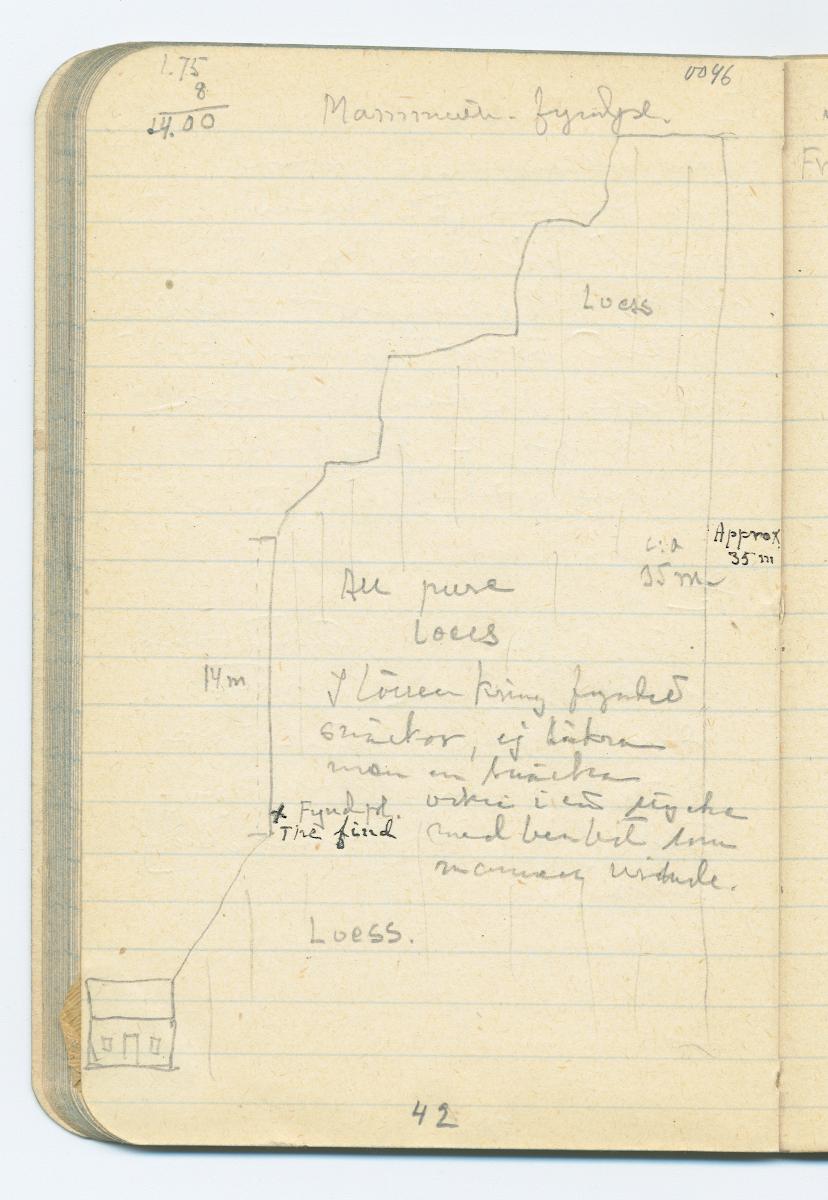 1.75
8
14.00
0046
Mammuth-fyndpl.
Loess
Approx
35 m
c:a
35 m
All pure
Loess
14 m
I lössen kring fyndet
snäckor, ej säkra
man en snäcka
i ett stycke
x Fyndpl.
The find
med benbit som
mannen visade.
Loess.
42
Fr